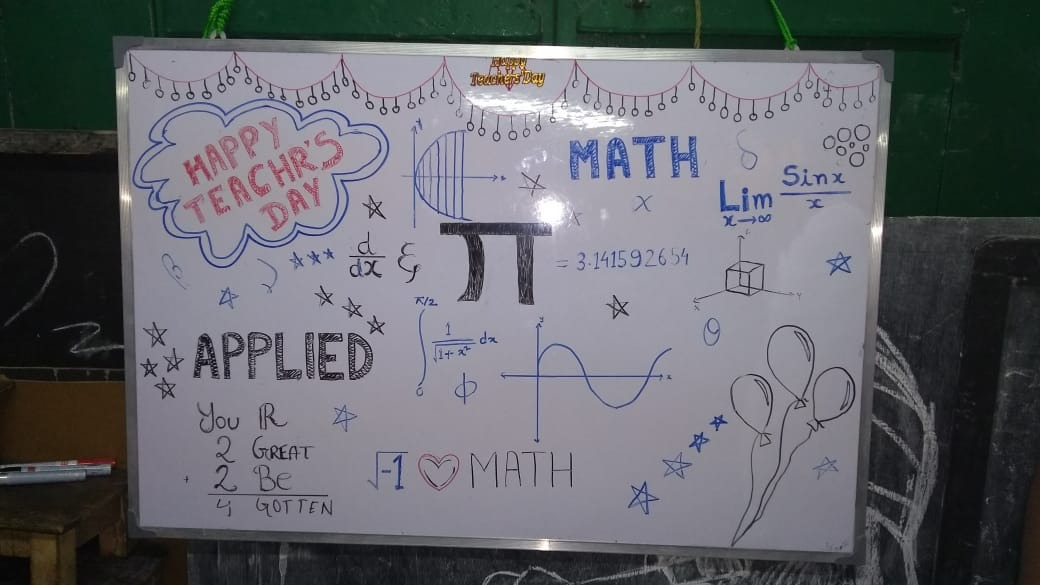 Happy
Teacher's Day
HAPPY
TEACHR'S
DAY
y
x
MATH
δ
x
x
Lim
x→∞
Sinx
x
d
dx
ξ
π
= 3.141592654
x
y
θ
APPLIED
π/2
∫
0
1
√1+x² dx
ϕ
y
x
You R
2 GREAT
+ 2 Be
4 GOTTEN
√-1 ♡ MATH